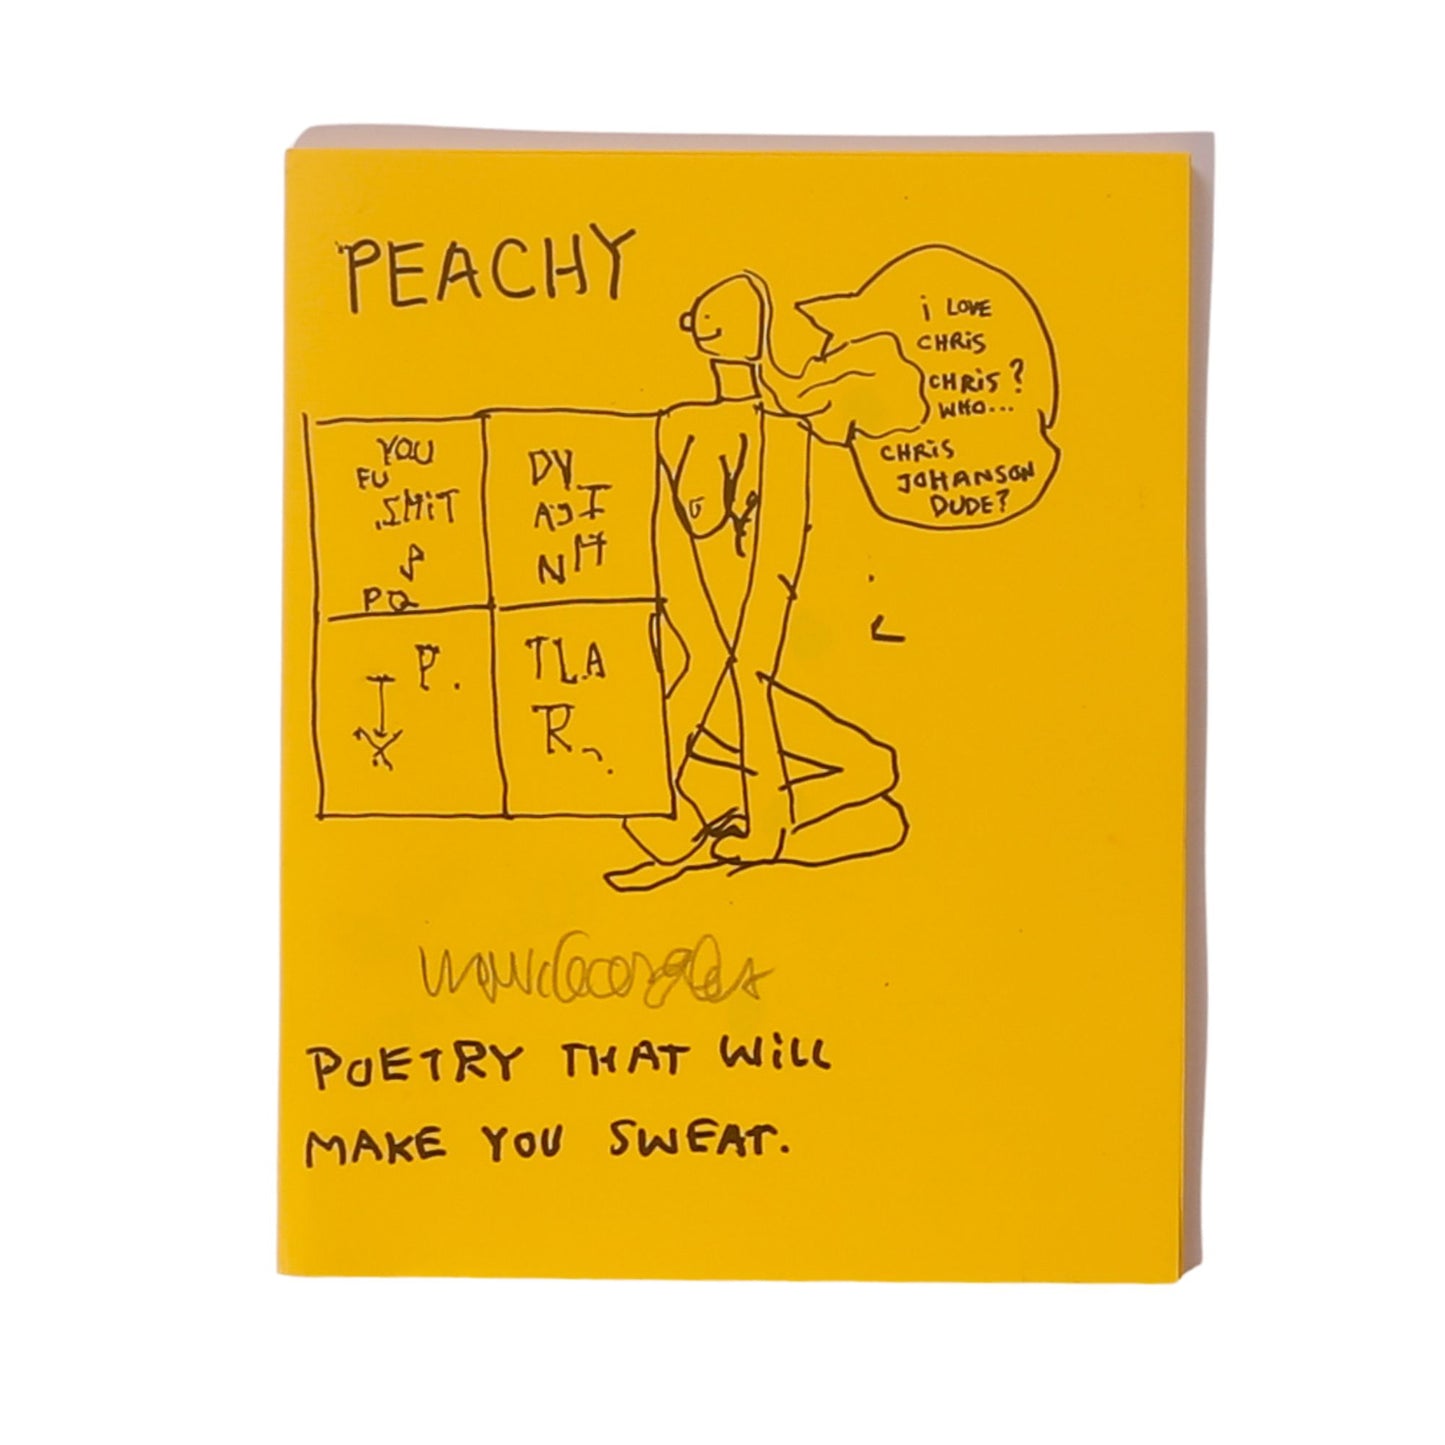 PEACHY
i LOVE
CHRiS
CHRiS?
WHO...
CHRiS
JOHANSON
DUDE?
YOU
FU
SHiT
PQ
DV
N
P.
TLA
R
POETRY THAT WiLL
MAKE YOU SWEAT.